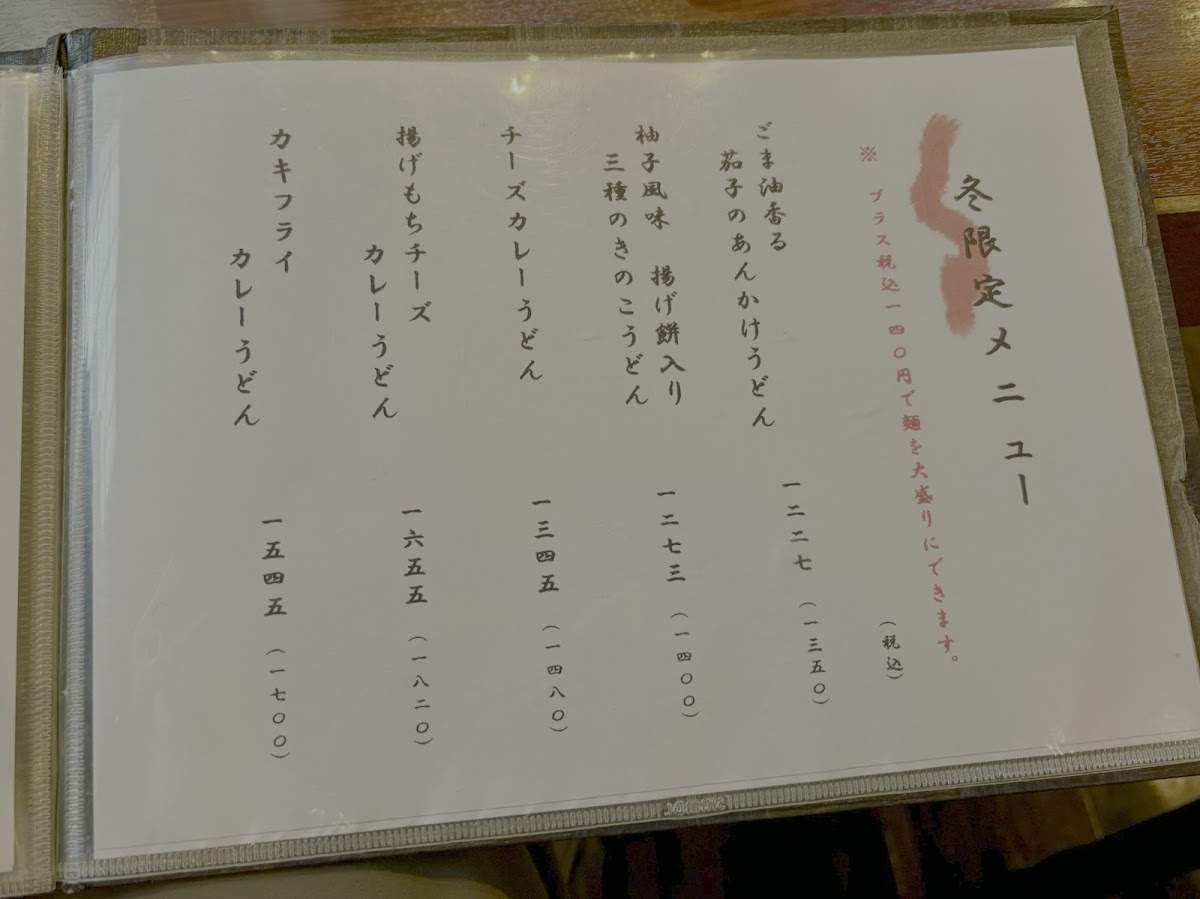 冬限定メニュー
※ プラス税込一四〇円で麺を大盛りにできます。
（税込）
ごま油香る
茄子のあんかけうどん
一二二七（一三五〇）
柚子風味 揚げ餅入り
三種のきのこうどん
一二七三（一四〇〇）
チーズカレーうどん
一三四五（一四八〇）
揚げもちチーズ
カレーうどん
一六五五（一八二〇）
カキフライ
カレーうどん
一五四五（一七〇〇）